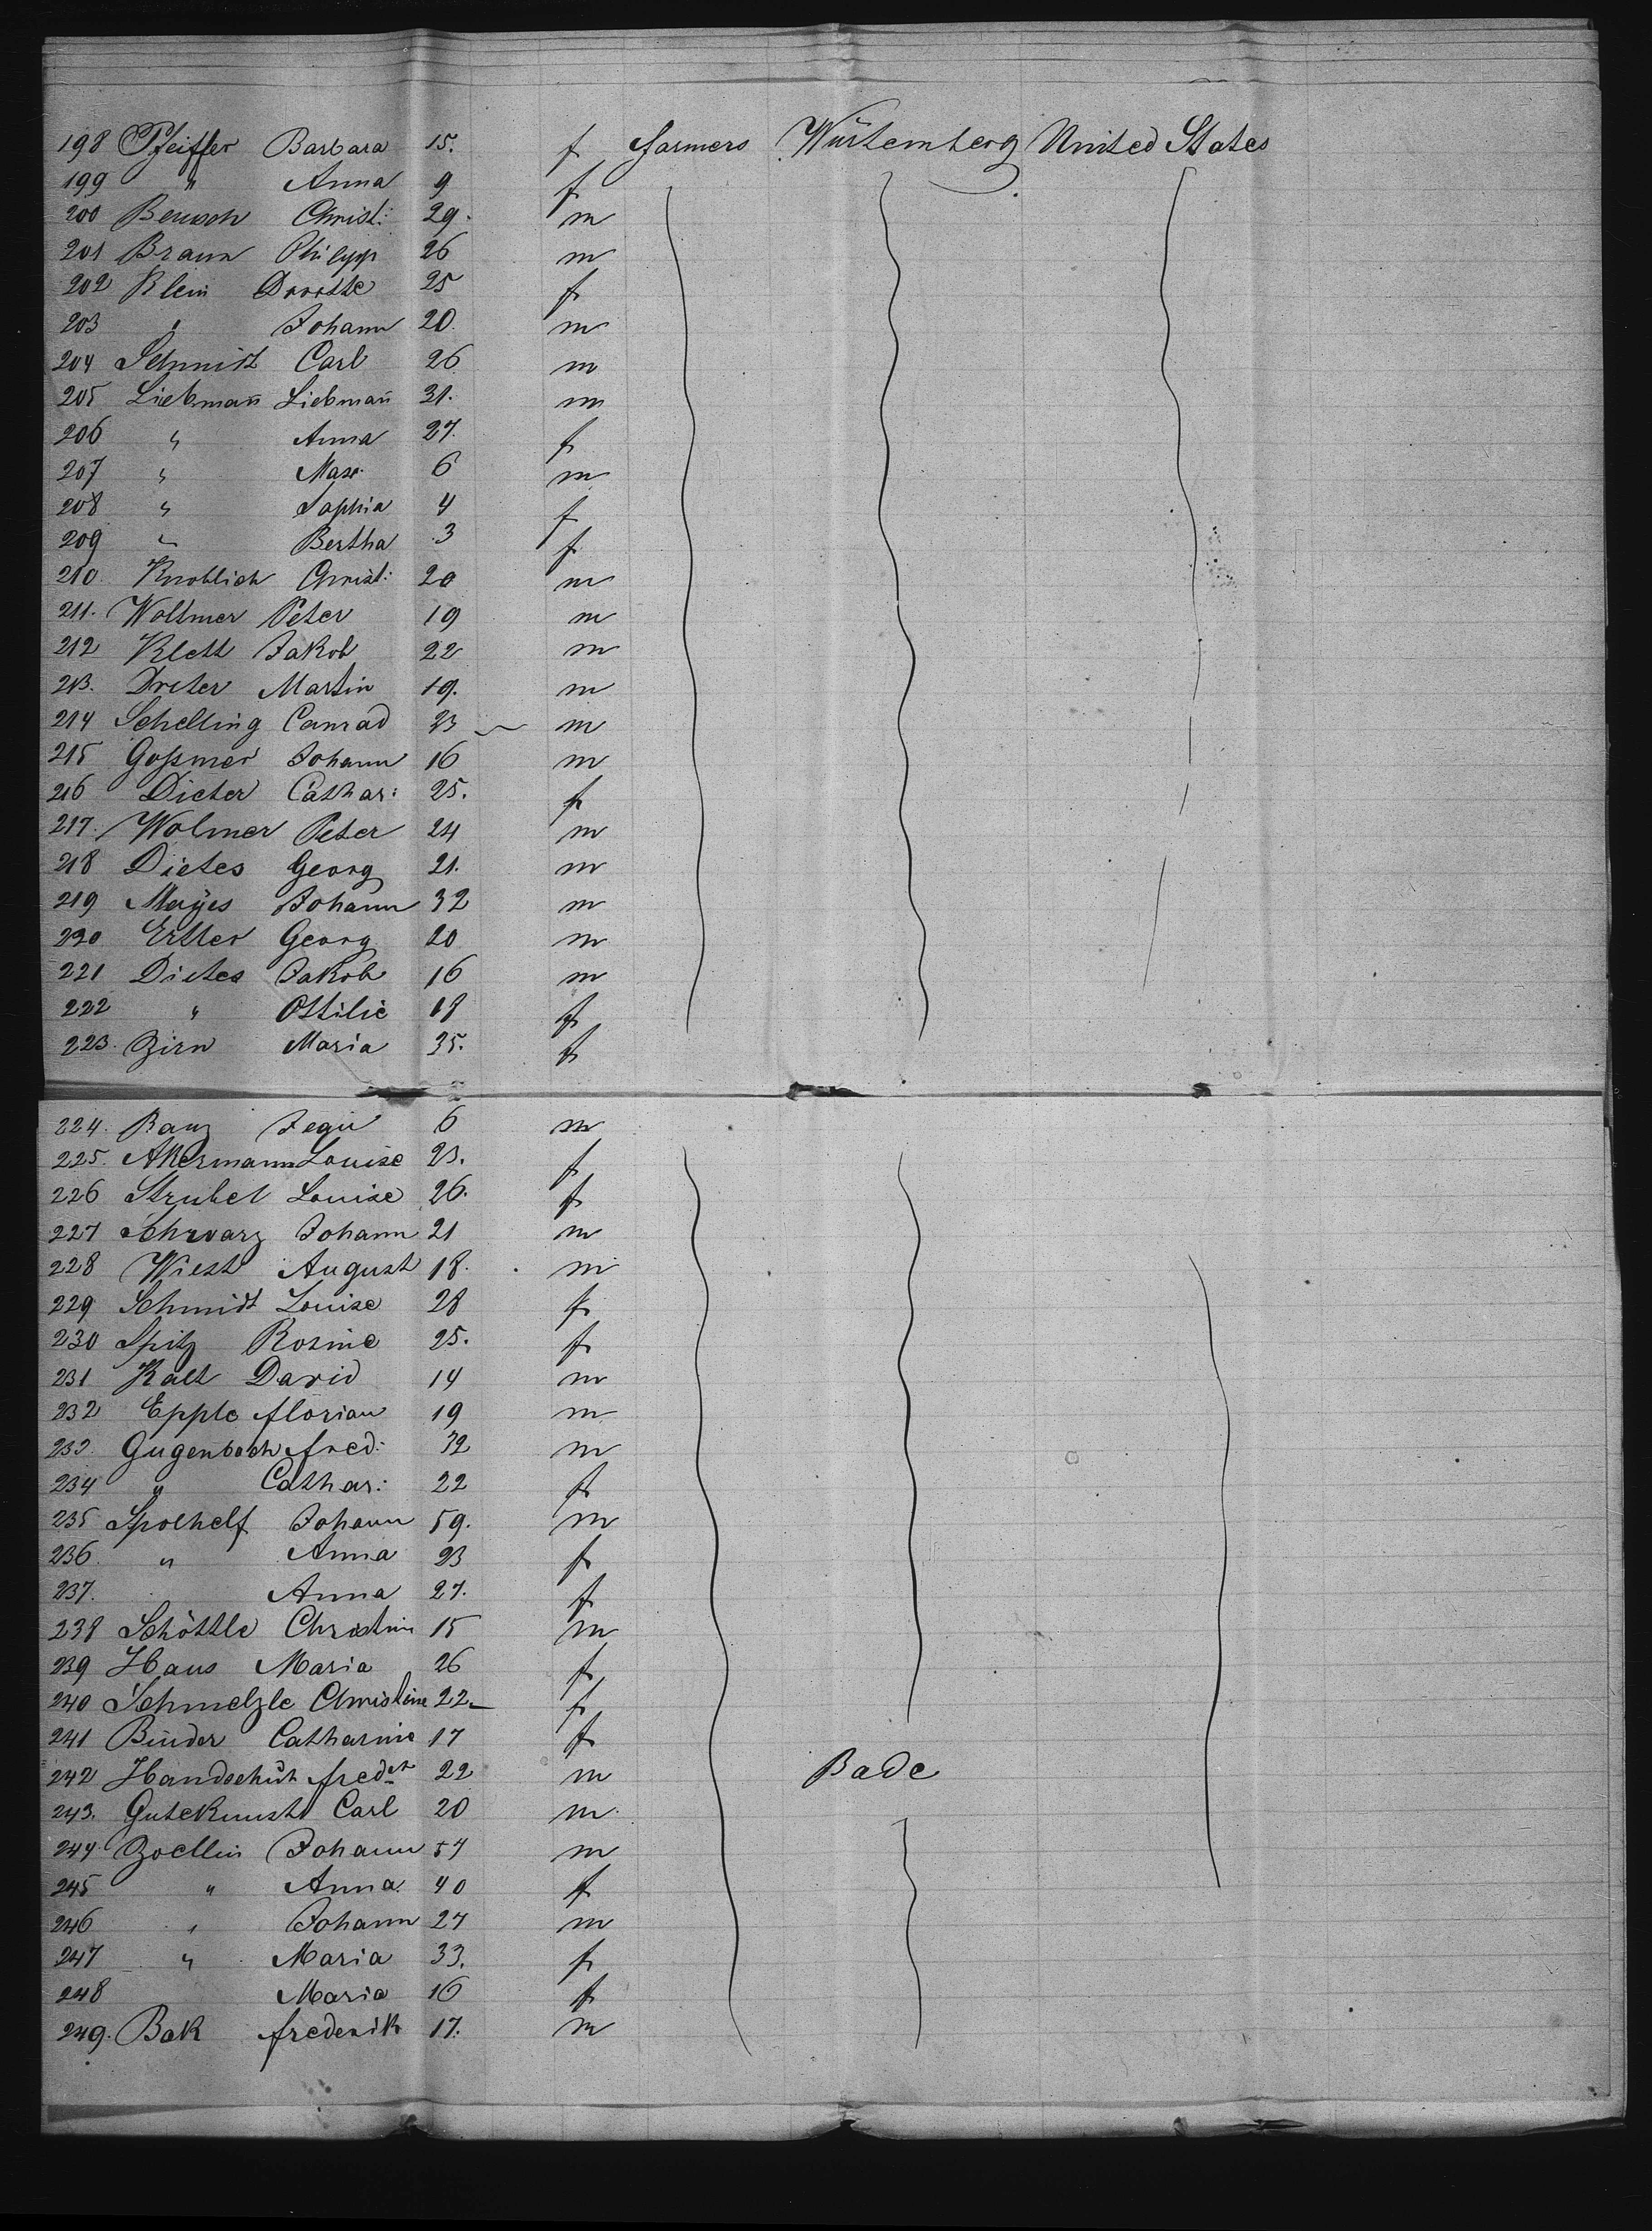 198 Pfeiffer Barbara 15. f farmers Würtemberg United States
199 " Anna 9 f
200 Beusch Christ: 29. m
201 Braun Philypp 26 m
202 Klein Doorthe 25 f
203 " Johann 20. m
204 Schmidt Carl 26 m
205 Liebman̄ Liebman̄ 31. m
206 " Anna 27. f
207 " Max 6 m
208 " Sophia 4 f
209 " Bertha 3 f
210. Knoblich Christ: 20 m
211. Woltmer Peter 19 m
212 Klett Jakob 22 m
213. Dreter Martin 19. m
214 Schelling Conrad 23 m
215 Goßmer Johann 16 m
216 Dieter Cathar: 25. f
217. Wolmer Peter 24 m
218 Dieter Georg 21. m
219 Mayer Johann 32 m
220 Ertter Georg 20 m
221 Dieter Jakob 16 m
222 " Ottilie 18 f
223. Zirn Maria 35. f
224. Ranz 6 m
225. Akermann Louise 23. f
226 Strubel Louise 26. f
227 Schwarz Johann 21 m
228 Wiest August 18. m
229 Schmidt Louise 28 f
230 Spitz Rosine 25. f
231 Kalt David 14 m
232 Epple florian 19 m
233 Gugenbach fred: 32 m
234 " Cathar: 22 f
235 Spoehelf Johann 59. m
236. " Anna 23 f
237. Anna 27. f
238 Schöttle Christine 15 m
239 Haus Maria 26 f
240 Schmelzle Christine 22 f
241 Binder Catharine 17 f
242 Handschuh fred 22 m Bade
243. Gutekunst Carl 20 m
244. Zoellin Johann 57 m
245 " Anna 40 f
246 " Johann 27 m
247 " Maria 33. f
248 Maria 16 f
249. Bak frederik 17. m